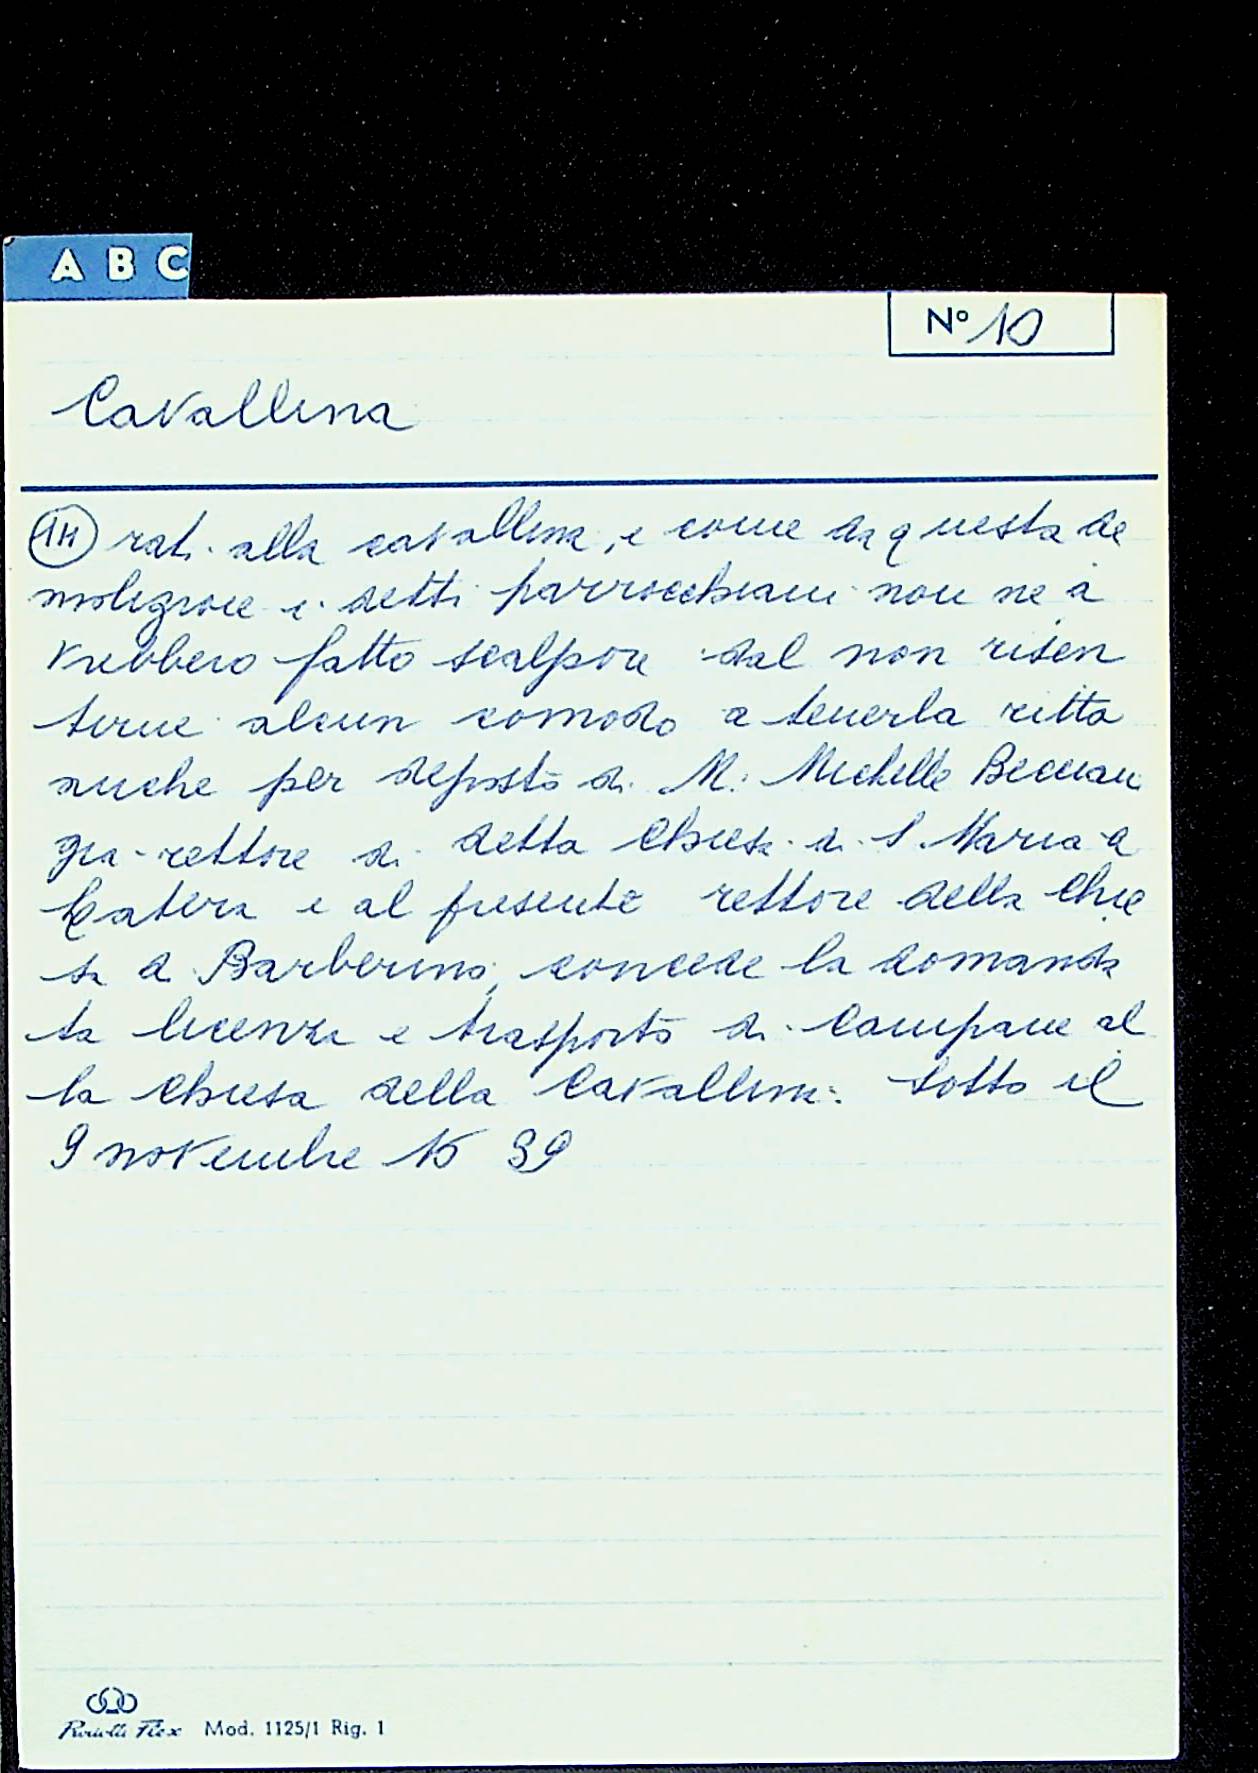 A B C
Nº 10
Cavallina
1H rati alla cavallina, e come da questa de
molizione i detti parrocchiani non ne a
vrebbero fatto scalpore dal non risen
tirne alcun comodo a tenerla ritta
anche per deposto di M. Michelle Becciani
gia rettore di detta Chiesa di S. Maria a
Latera e al presente rettore della Chie
sa a Barberino, concede la domanda
ta licenza e trasporto di Campane al
la Chiesa della Cavallina. Sotto il
9 novembre 15 39
Flex Mod. 1125/1 Rig. 1